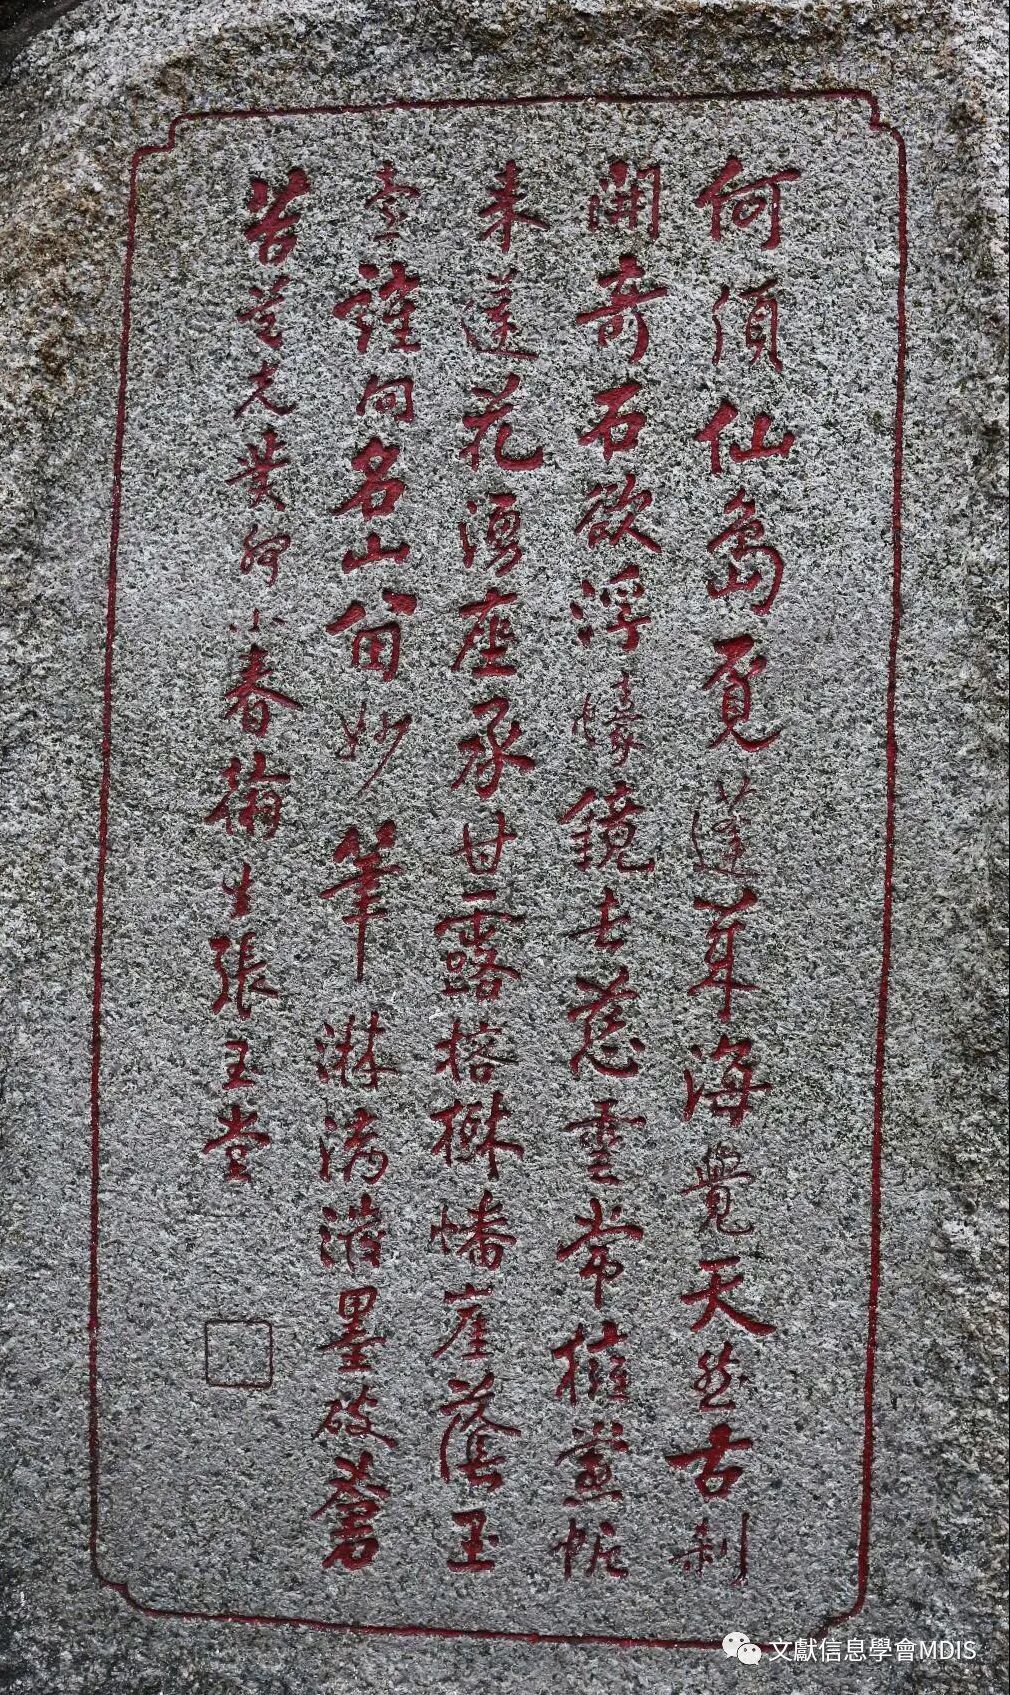 何須仙島覓蓬萊海覺天然古剎
開奇石欲浮濠鏡去慈雲常擁帆
來蓮花湧座承甘露榕樹幡崖蔭玉
臺誰向名山留妙筆淋漓潑墨破蒼
苔道光癸卯小春翰生張玉堂
文獻信息學會MDIS